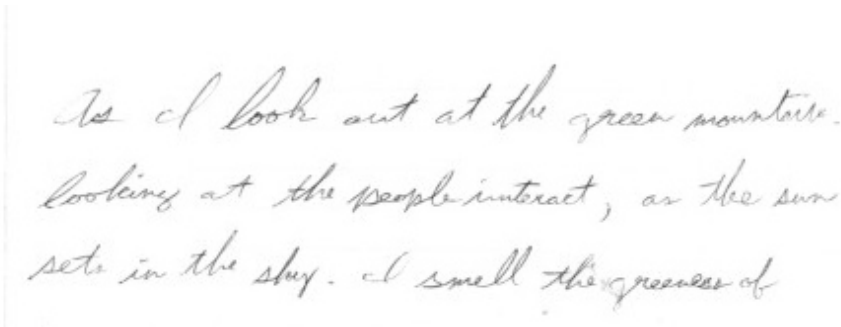 As I look out at the green mountains.
looking at the people interact, as the sun
sets in the sky. I smell the greeness of